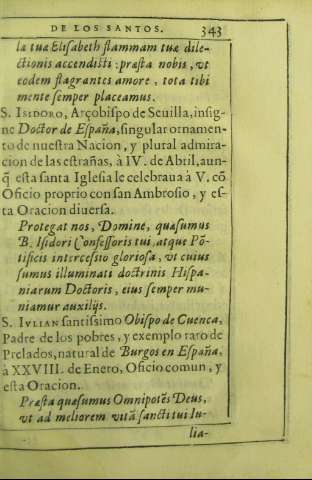 DE LOS SANTOS. 343
la tuæ Elisabeth flammam tuæ dile-
ctionis accendisti: præsta nobis, vt
eodem flagrantes amore, tota tibi
mente semper placeamus.
S. ISIDORO, Arçobispo de Seuilla, insig-
ne Doctor de España, singular ornamen-
to de nuestra Nacion, y plural admira-
cion de las estrañas, à IV. de Abril, aun-
q̃ esta santa Iglesia le celebraua à V. cõ
Oficio proprio con san Ambrosio, y es-
ta Oracion diuersa.
Protegat nos, Domine, quæsumus
B. Isidori Confessoris tui, atque Põ-
tificis intercessio gloriosa, vt cuius
sumus illuminati doctrinis Hispa-
niarum Doctoris, eius semper mu-
niamur auxilijs.
S. IVLIAN santissimo Obispo de Cuenca,
Padre de los pobres, y exemplo raro de
Prelados, natural de Burgos en España,
à XXVIII. de Enero, Oficio comun, y
esta Oracion.
Præsta quæsumus Omnipotẽs Deus,
vt ad meliorem vitã sancti tui Iu-
lia-